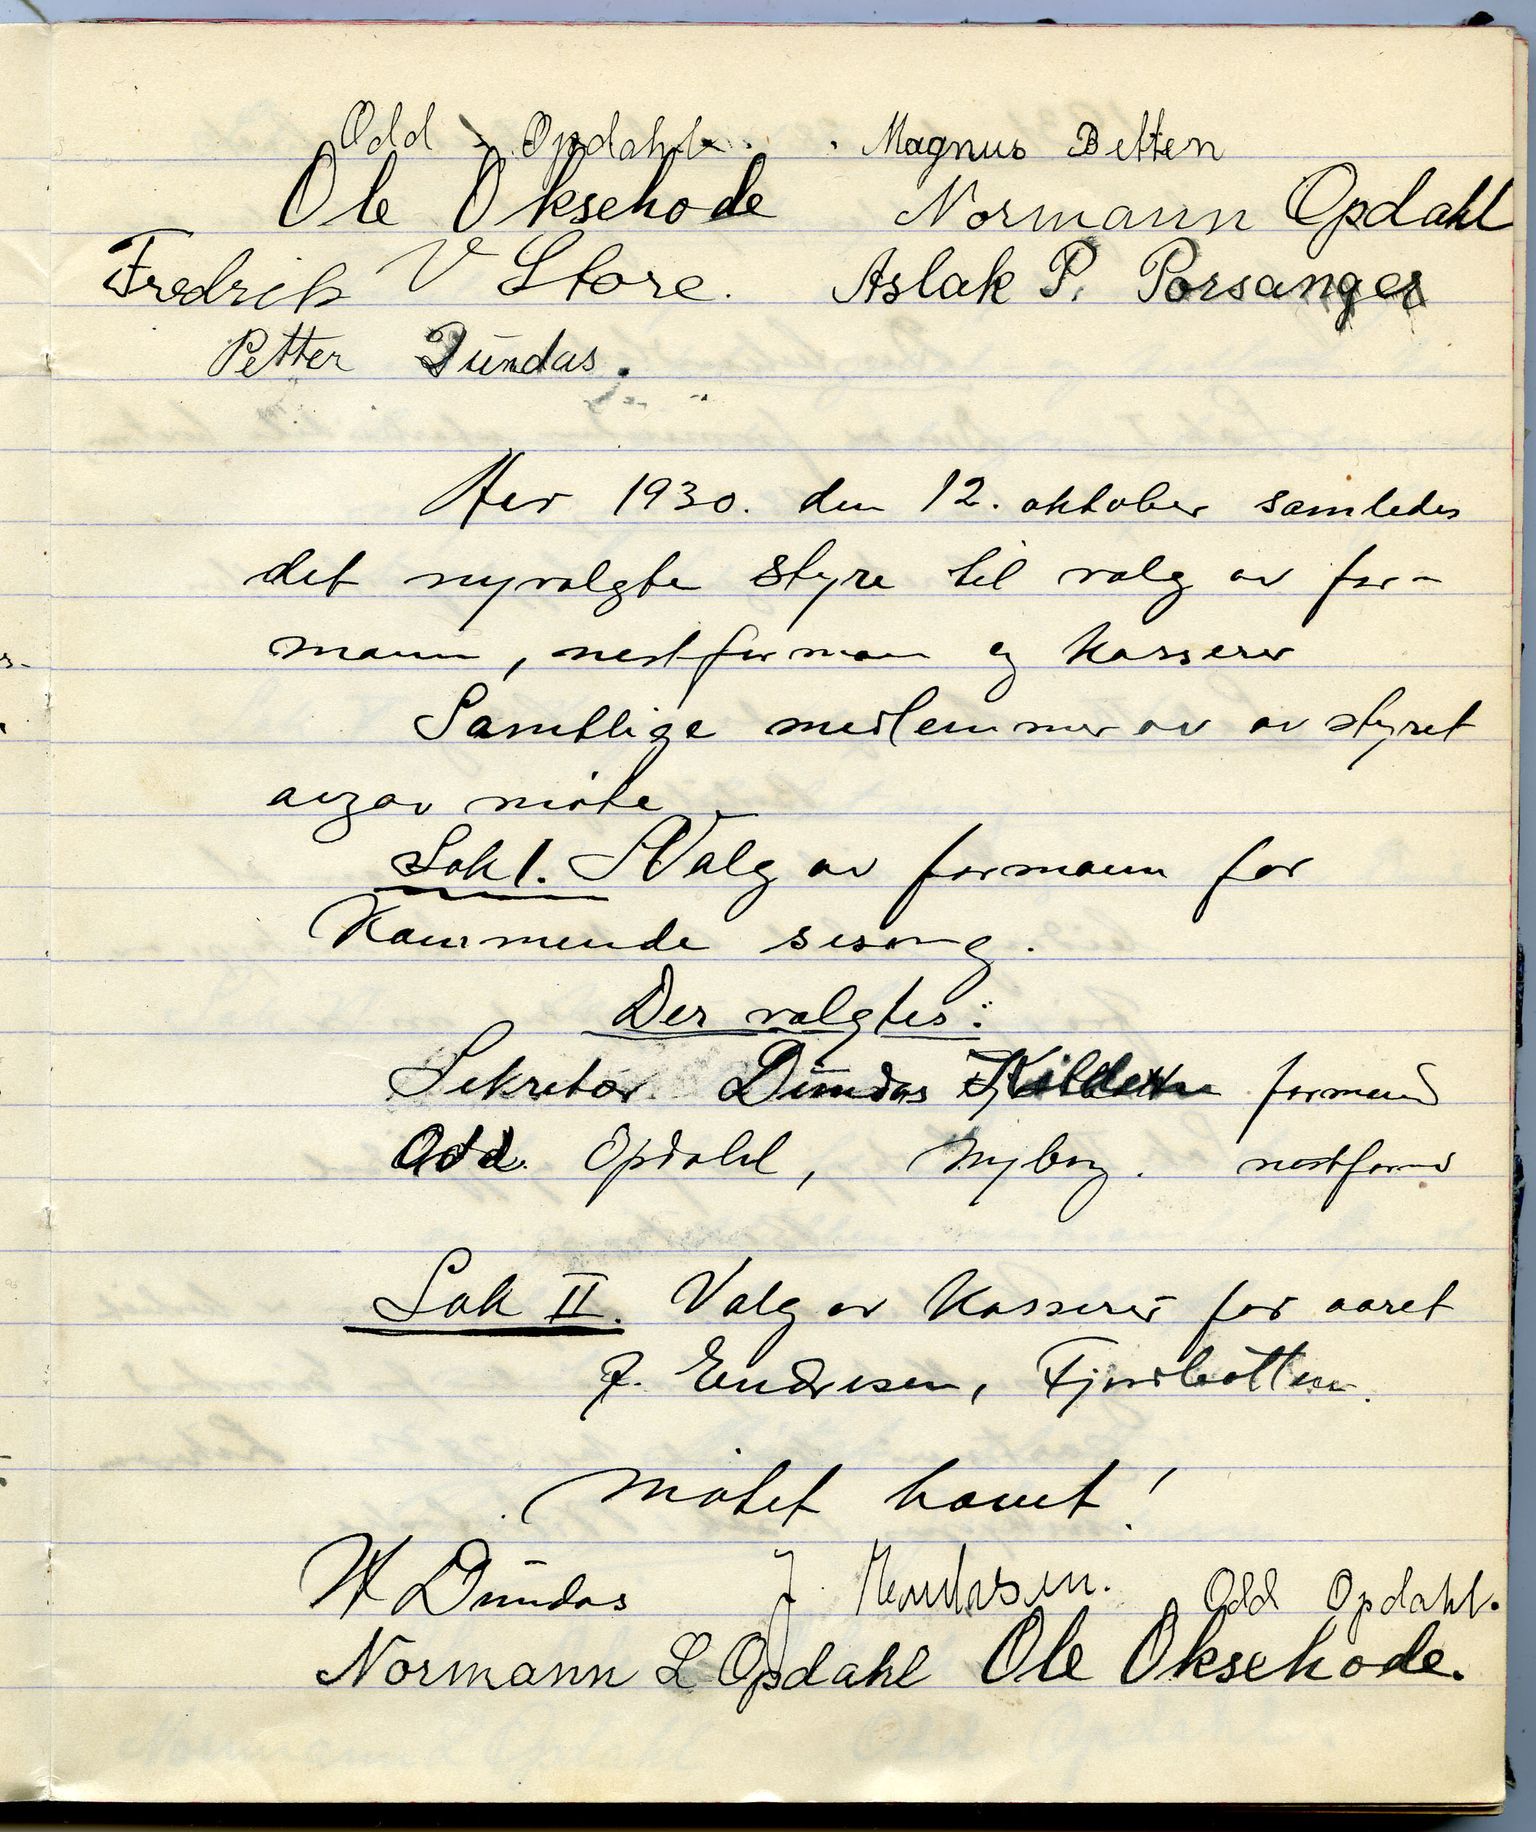 Odd Opdahl. Magnus Betten
Ole Oksehode Normann Opdahl
Fredrik V Store. Aslak P. Porsanger
Petter Dundas.
Aer 1930. den 12. oktober samledes
det nyvalgte styre til valg av for-
mann, nestforman og kasserer
Samtlige medlemmer av av styret
avgav møte
Sak 1. Valg av formann for
kommende sesong.
Der valgtes:
Sekretær Dundas formand
Odd. Opdahl, Nyborg. nestformd
Sak II. Valg av kasserer for aaret
J. Endresen, Fjordbotten.
Møtet hævet!
W Dundas J. Odd Opdahl.
Normann L Opdahl Ole Oksehode.